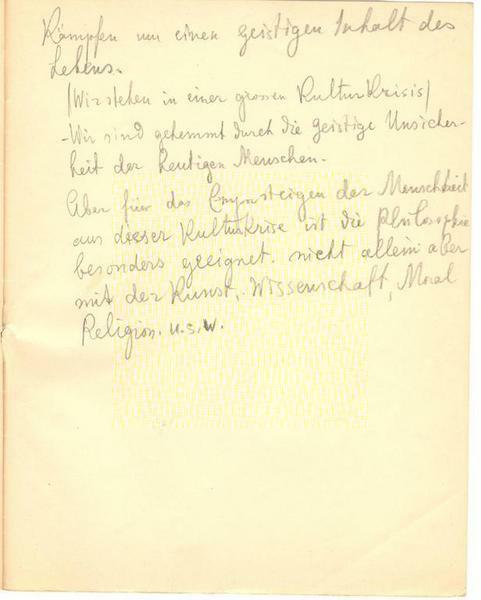 Kämpfen um einen geistigen Inhalt des
Lebens.
(Wir stehen in einer grossen KulturKrisis)
-Wir sind gehemmt durch die geistige Unsicher-
heit der heutigen Menschen.
Aber für das Emporsteigen der Menschheit
aus dieser Kulturkrise ist die Philosophie
besonders geeignet. nicht allein aber
mit der Kunst, Wissenschaft, Moral
Religion. u.s.w.